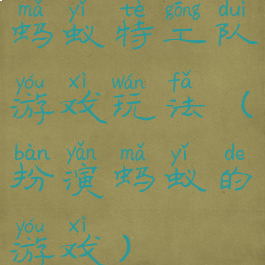 mǎ yǐ tè gōng duì
蚂蚁特工队
yóu xì wán fǎ
游戏玩法（
bàn yǎn mǎ yǐ de
扮演蚂蚁的
yóu xì
游戏）